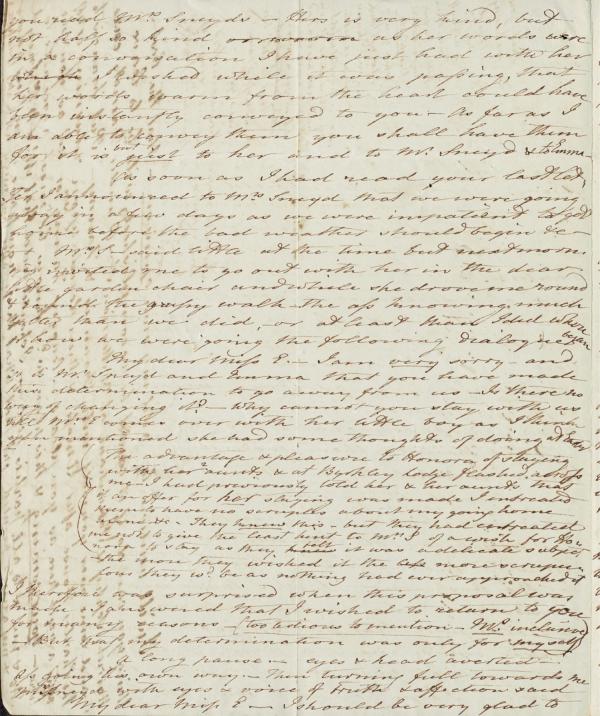 you read Mrs. Sneyds – Hers is very kind, but
not half so kind as her words were
in a conversation I have just had with her
I wished while it was passing, that
her words warm from the heart could have
been instantly conveyed to you – As far as I
am able to convey them you shall have them
for it is but just to her and to Mr. Sneyd & to Emma –
As soon as I had read your last
I announced to Mrs Sneyd that we were going
away in a few days as we were impatient to get
home before the bad weather should begin &c –
Mrs S – said little at the time but next morn
invited me to go out with her in the dear
little garden chair and while she drove me round
& round the grassy walk – the ass knowing much
better than we did, or at least than I did where
or how we were going the following dialogue began
My dear Miss E – I am very sorry and
so is Mr. Sneyd and Emma that you have made
this determination to go away from us – Is there no
way of changing it? – Why cannot you stay with us
till Mrs E comes over with her little boy as I think
you mentioned she had some thoughts of doing
The advantage & pleasure to Honora of staying
with her aunts & at Byrkley Lodge flashed across
me – I had previously told her & her aunts that
if an offer for her staying was made I
have no scruples about my going home
alone &c – They knew this – but they had
me not to give the least hint to Mrs S of a wish for Ho-
nora to stay as they felt it was a delicate subject
the more they wished it the more scrupu-
lous they wd. be as nothing had ever approached it
I therefore was surprised when this proposal was
made – I answered that I wished to return to you
for many reasons – (too tedious to mention – Mrs. inclusive)
– But that my determination was only for myself
A long pause – eyes & head averted –
As going his own way – then turning full towards me
Mrs Sneyd with eyes & voice of truth & affection said
My dear Miss E – I should be very glad to